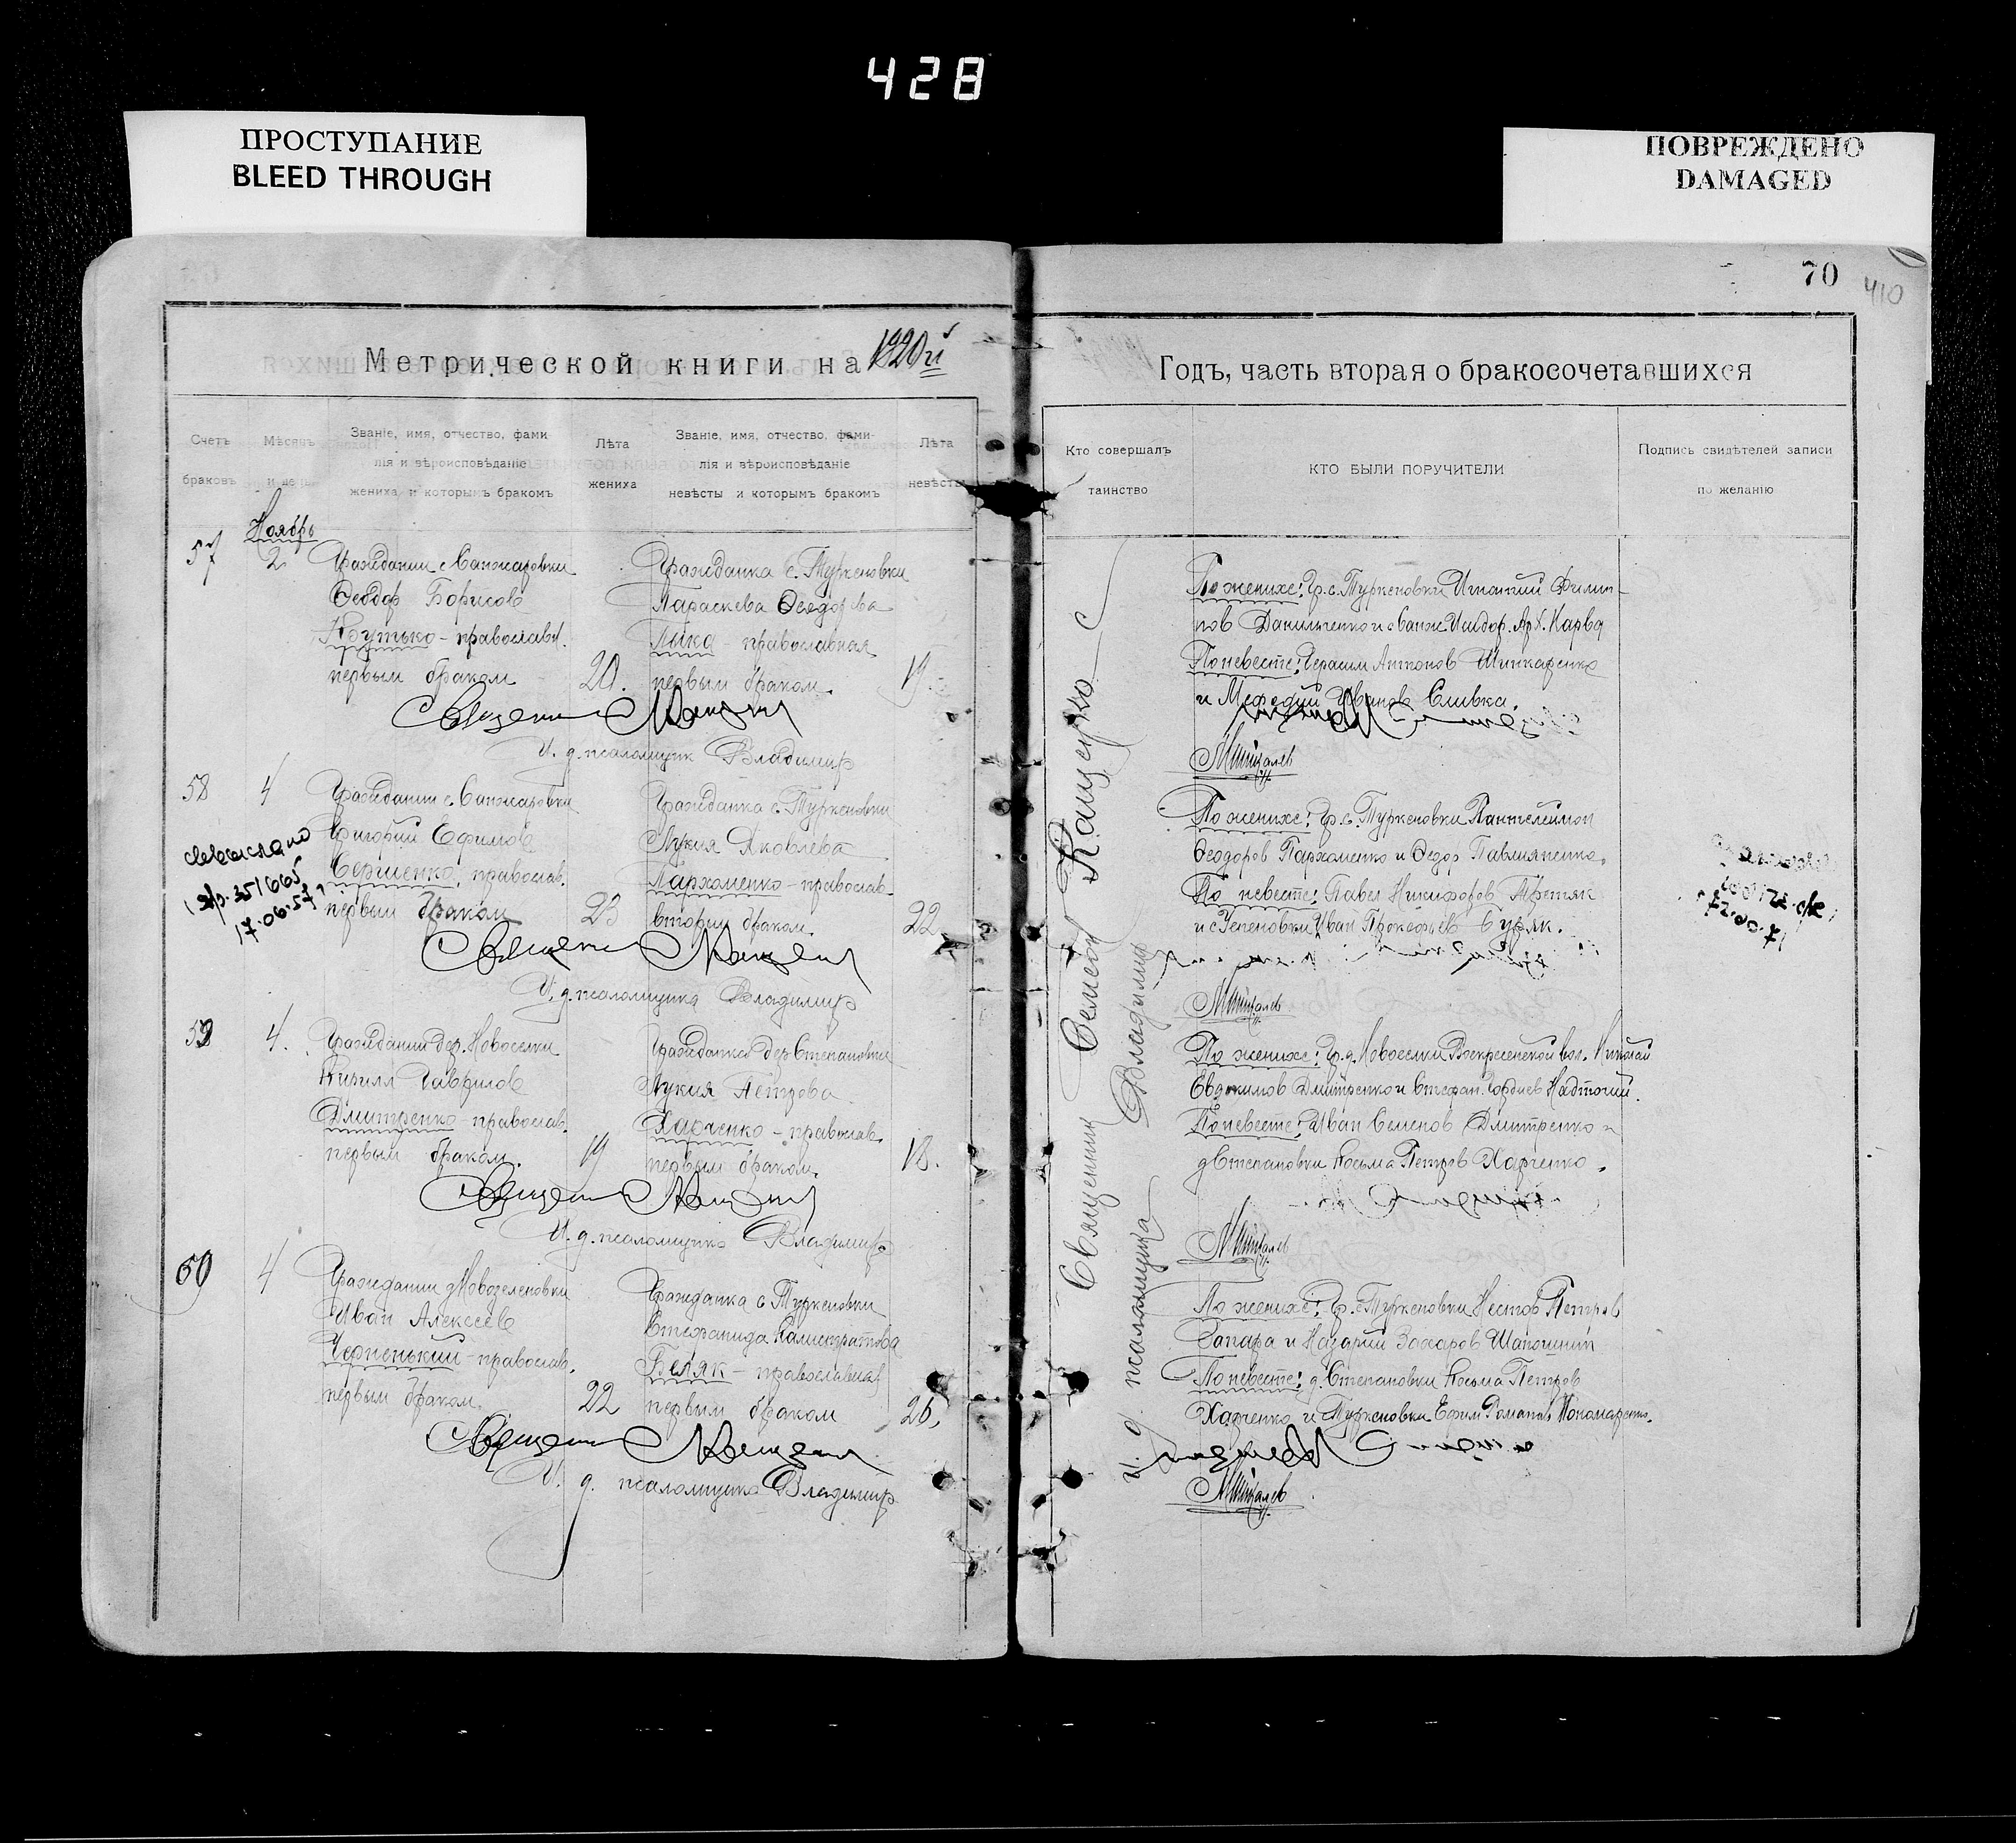 428
ПРОСТУПАНИЕ
BLEED THROUGH
ПОВРЕЖДЕНО
DAMAGED
70
410
Метрической книги на 1920й
Годъ, часть вторая о бракосочетавшихся
Счетъ
браковъ
Мѣсяцъ
и день
Званіе, имя, отчество, фами
лія и вѣроисповѣданіе
жениха и которымъ бракомъ
Лѣта
жениха
Званіе, имя, отчество, фами-
лія и вѣроисповѣданіе
невѣсты и которымъ бракомъ
Лѣта
невѣсты
Кто совершалъ
таинство
КТО БЫЛИ ПОРУЧИТЕЛИ
Подпись свидѣтелей записи
по желанію
Ноябрь
57
2
Гражданин с. Санжаровки
Ѳеодор Борисов
православн.
первым браком
20.
Гражданка с. Туркеновки
Параскева Ѳеодорова
Лыка православная
первым браком.
19.
И. д. псаломщик Владимир
По женихе: Гр. с. Туркеновки Игнатий Филип-
пов Данильченко и
По невесте: Герасим Антонов Шинкаренко
и Мефодий Иванов Сливка.
58
4
17.06.57
Гражданин с. Санжаровки
Григорий Ефимов
Сергиенко, православ.
первым браком
23
Гражданка с. Туркеновки
Лукия Яковлева
Пархоменко - православ.
вторым браком.
22.
И. д. псаломщика Владимир
По женихе: Гр. с. Туркеновки Пантелеимон
Ѳеодоров Пархоменко и Ѳедор
По невесте: Павел Никифоров Третяк
и с Успеновки Иван Прокофьев Суряк.
59
4.
Гражданин дер. Новоселки
Кирилл Гаврилов
Дмитренко - православ.
первым браком.
19
Гражданка дер Степановки
Лукия Петрова
Харченко - православ.
первым браком.
18.
И. д. псаломщика Владимир
По женихе: Гр. д. Новоселки Воскресенской вол. Николай
Евдокимов Дмитренко и Стефан Гордиев Надточий.
По невесте: Иван Семенов Дмитренко и
д Степановки Косьма Петров Харченко.
60
4
Гражданин д Новозеленовки
Иван Алексеев
Черненький - православ.
первым браком.
22
Гражданка с Туркеновки
Стефанида Калистратова
Беляк - православная
первым браком
26,
И. д. псаломщика Владимир
По женихе: Гр. с Туркеновки Нестор Петров
Сапара и Назарий Захаров
По невесте: д. Степановки Косьма Петров
Харченко и Туркеновки Ефим Романов Пономаренко.
Священник Семеон Кащенко
И. д. псаломщика Владимир